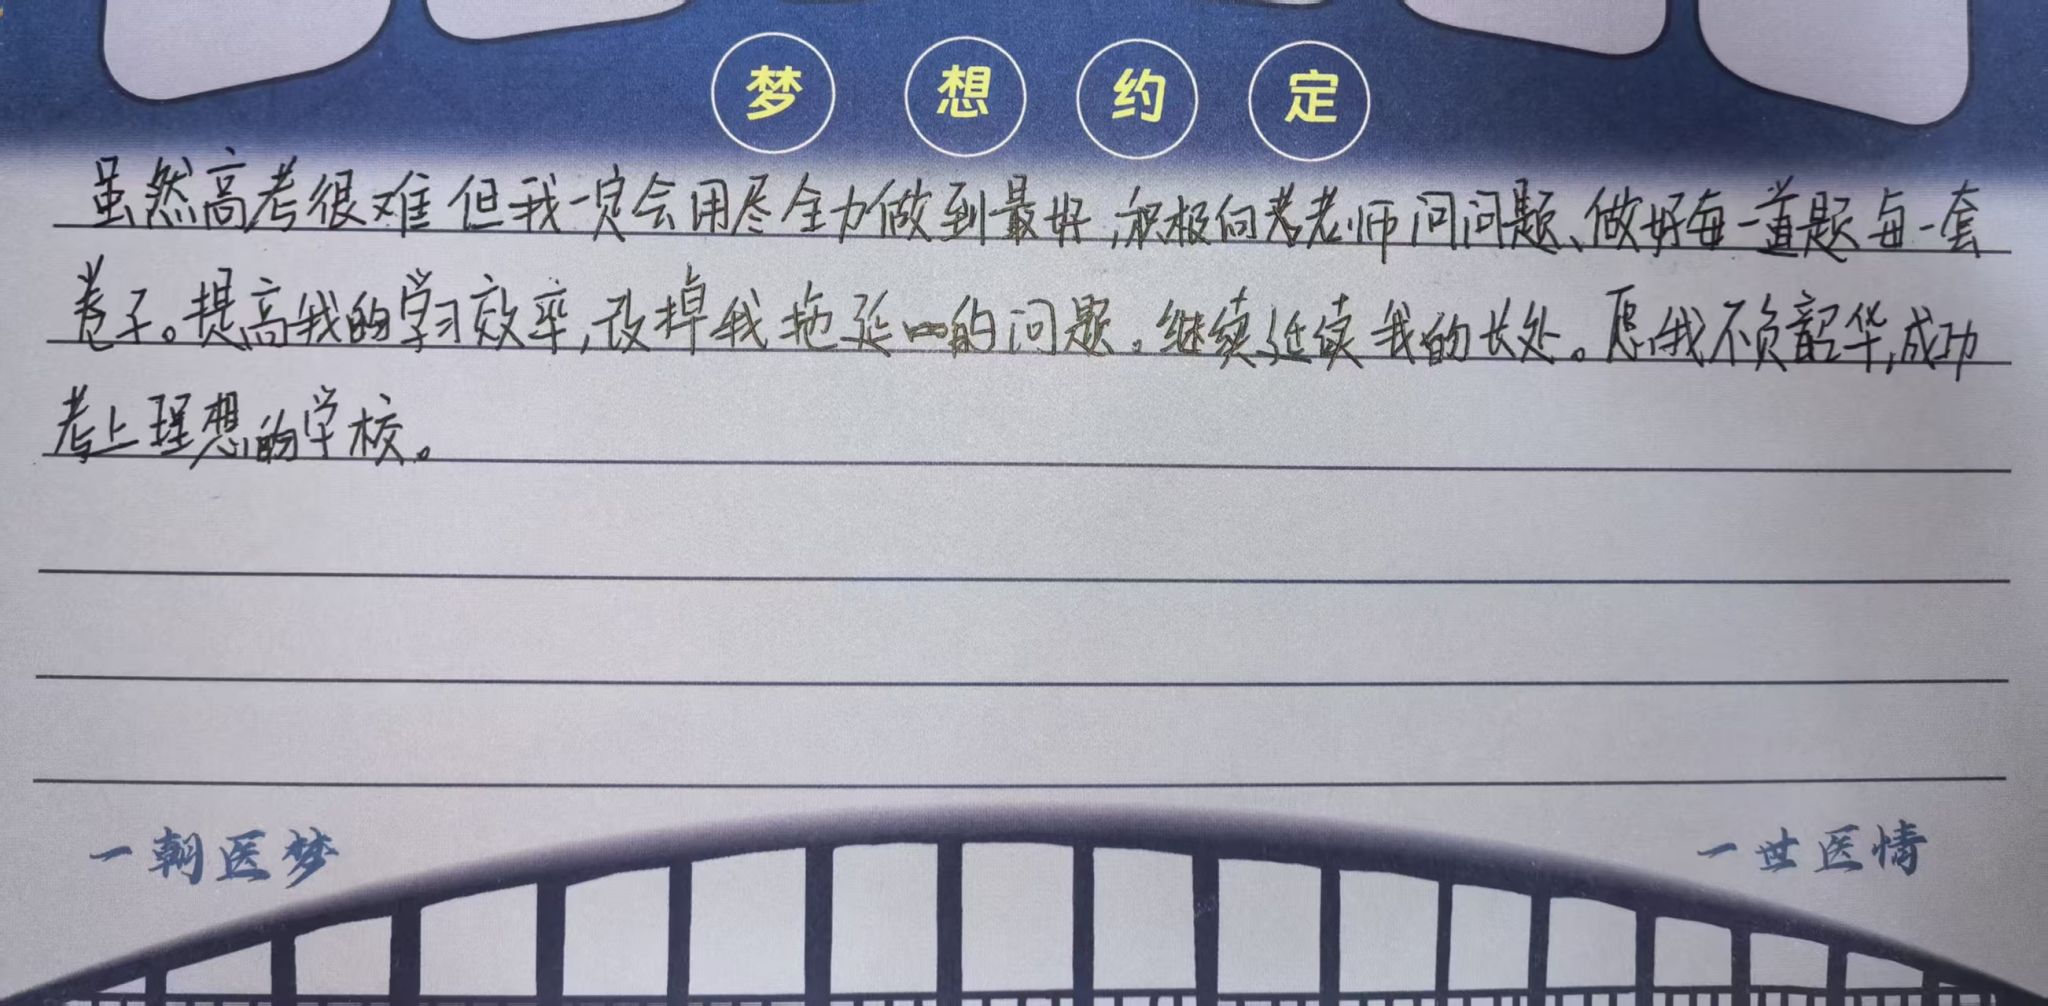 梦想约定
虽然高考很难但我一定会用尽全力做到最好,积极向老师问问题、做好每一道题每一套
卷子。提高我的学习效率,改掉我拖延的问题。继续延续我的长处。愿我不负韶华,成功
考上理想的学校。
一朝医梦
一世医情